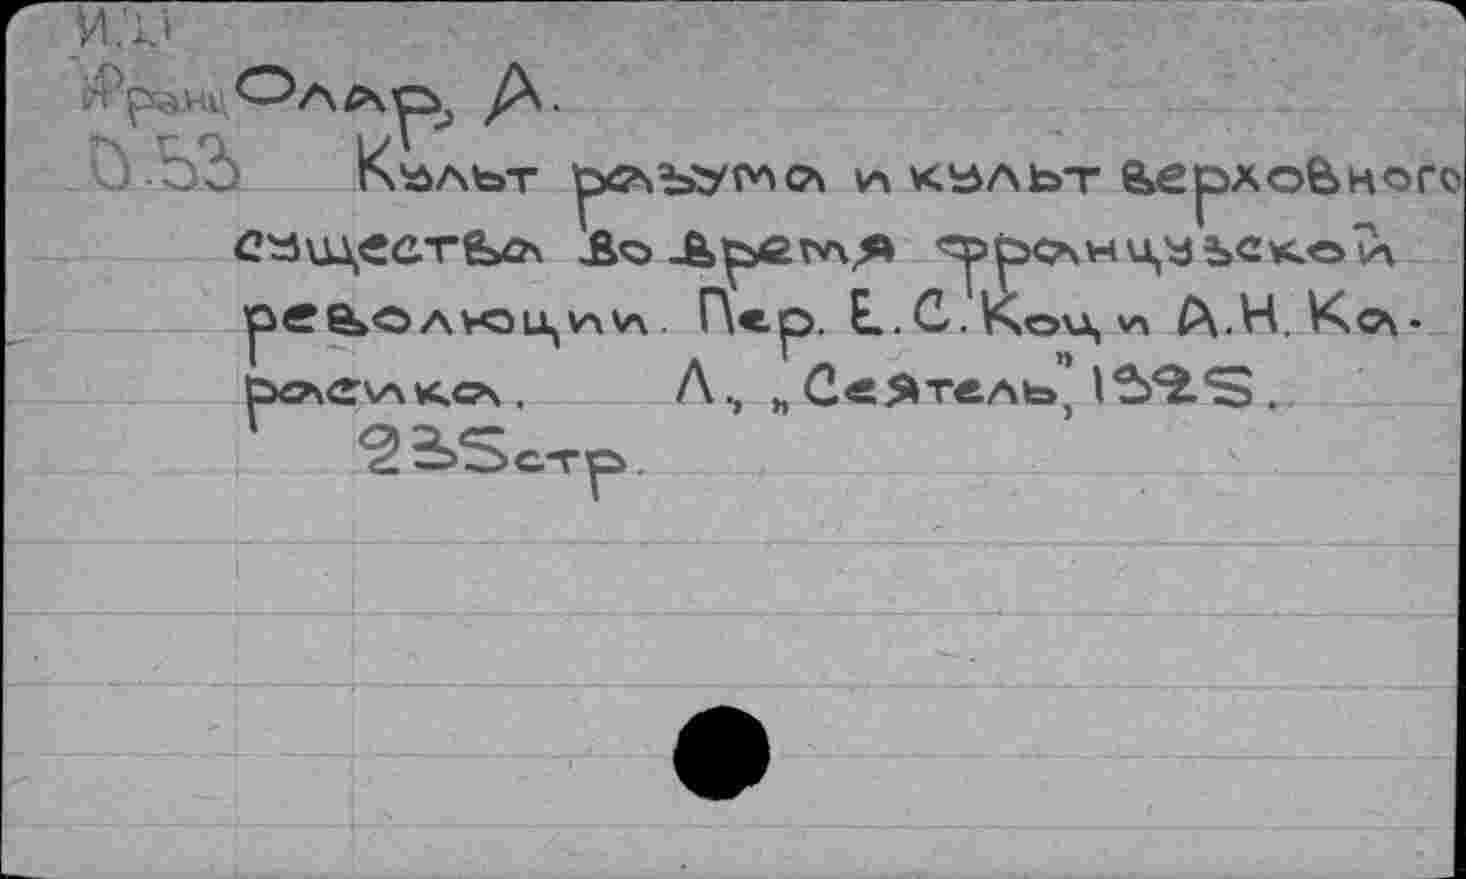 И.II
Франц Олар, А.
О.53 Культ разума и культ верховного
существа во время французской
революции. Пер. Е.С. Коц и А.Н. Ка-
расика. Л., „Сеятель", 1925.
235стр.